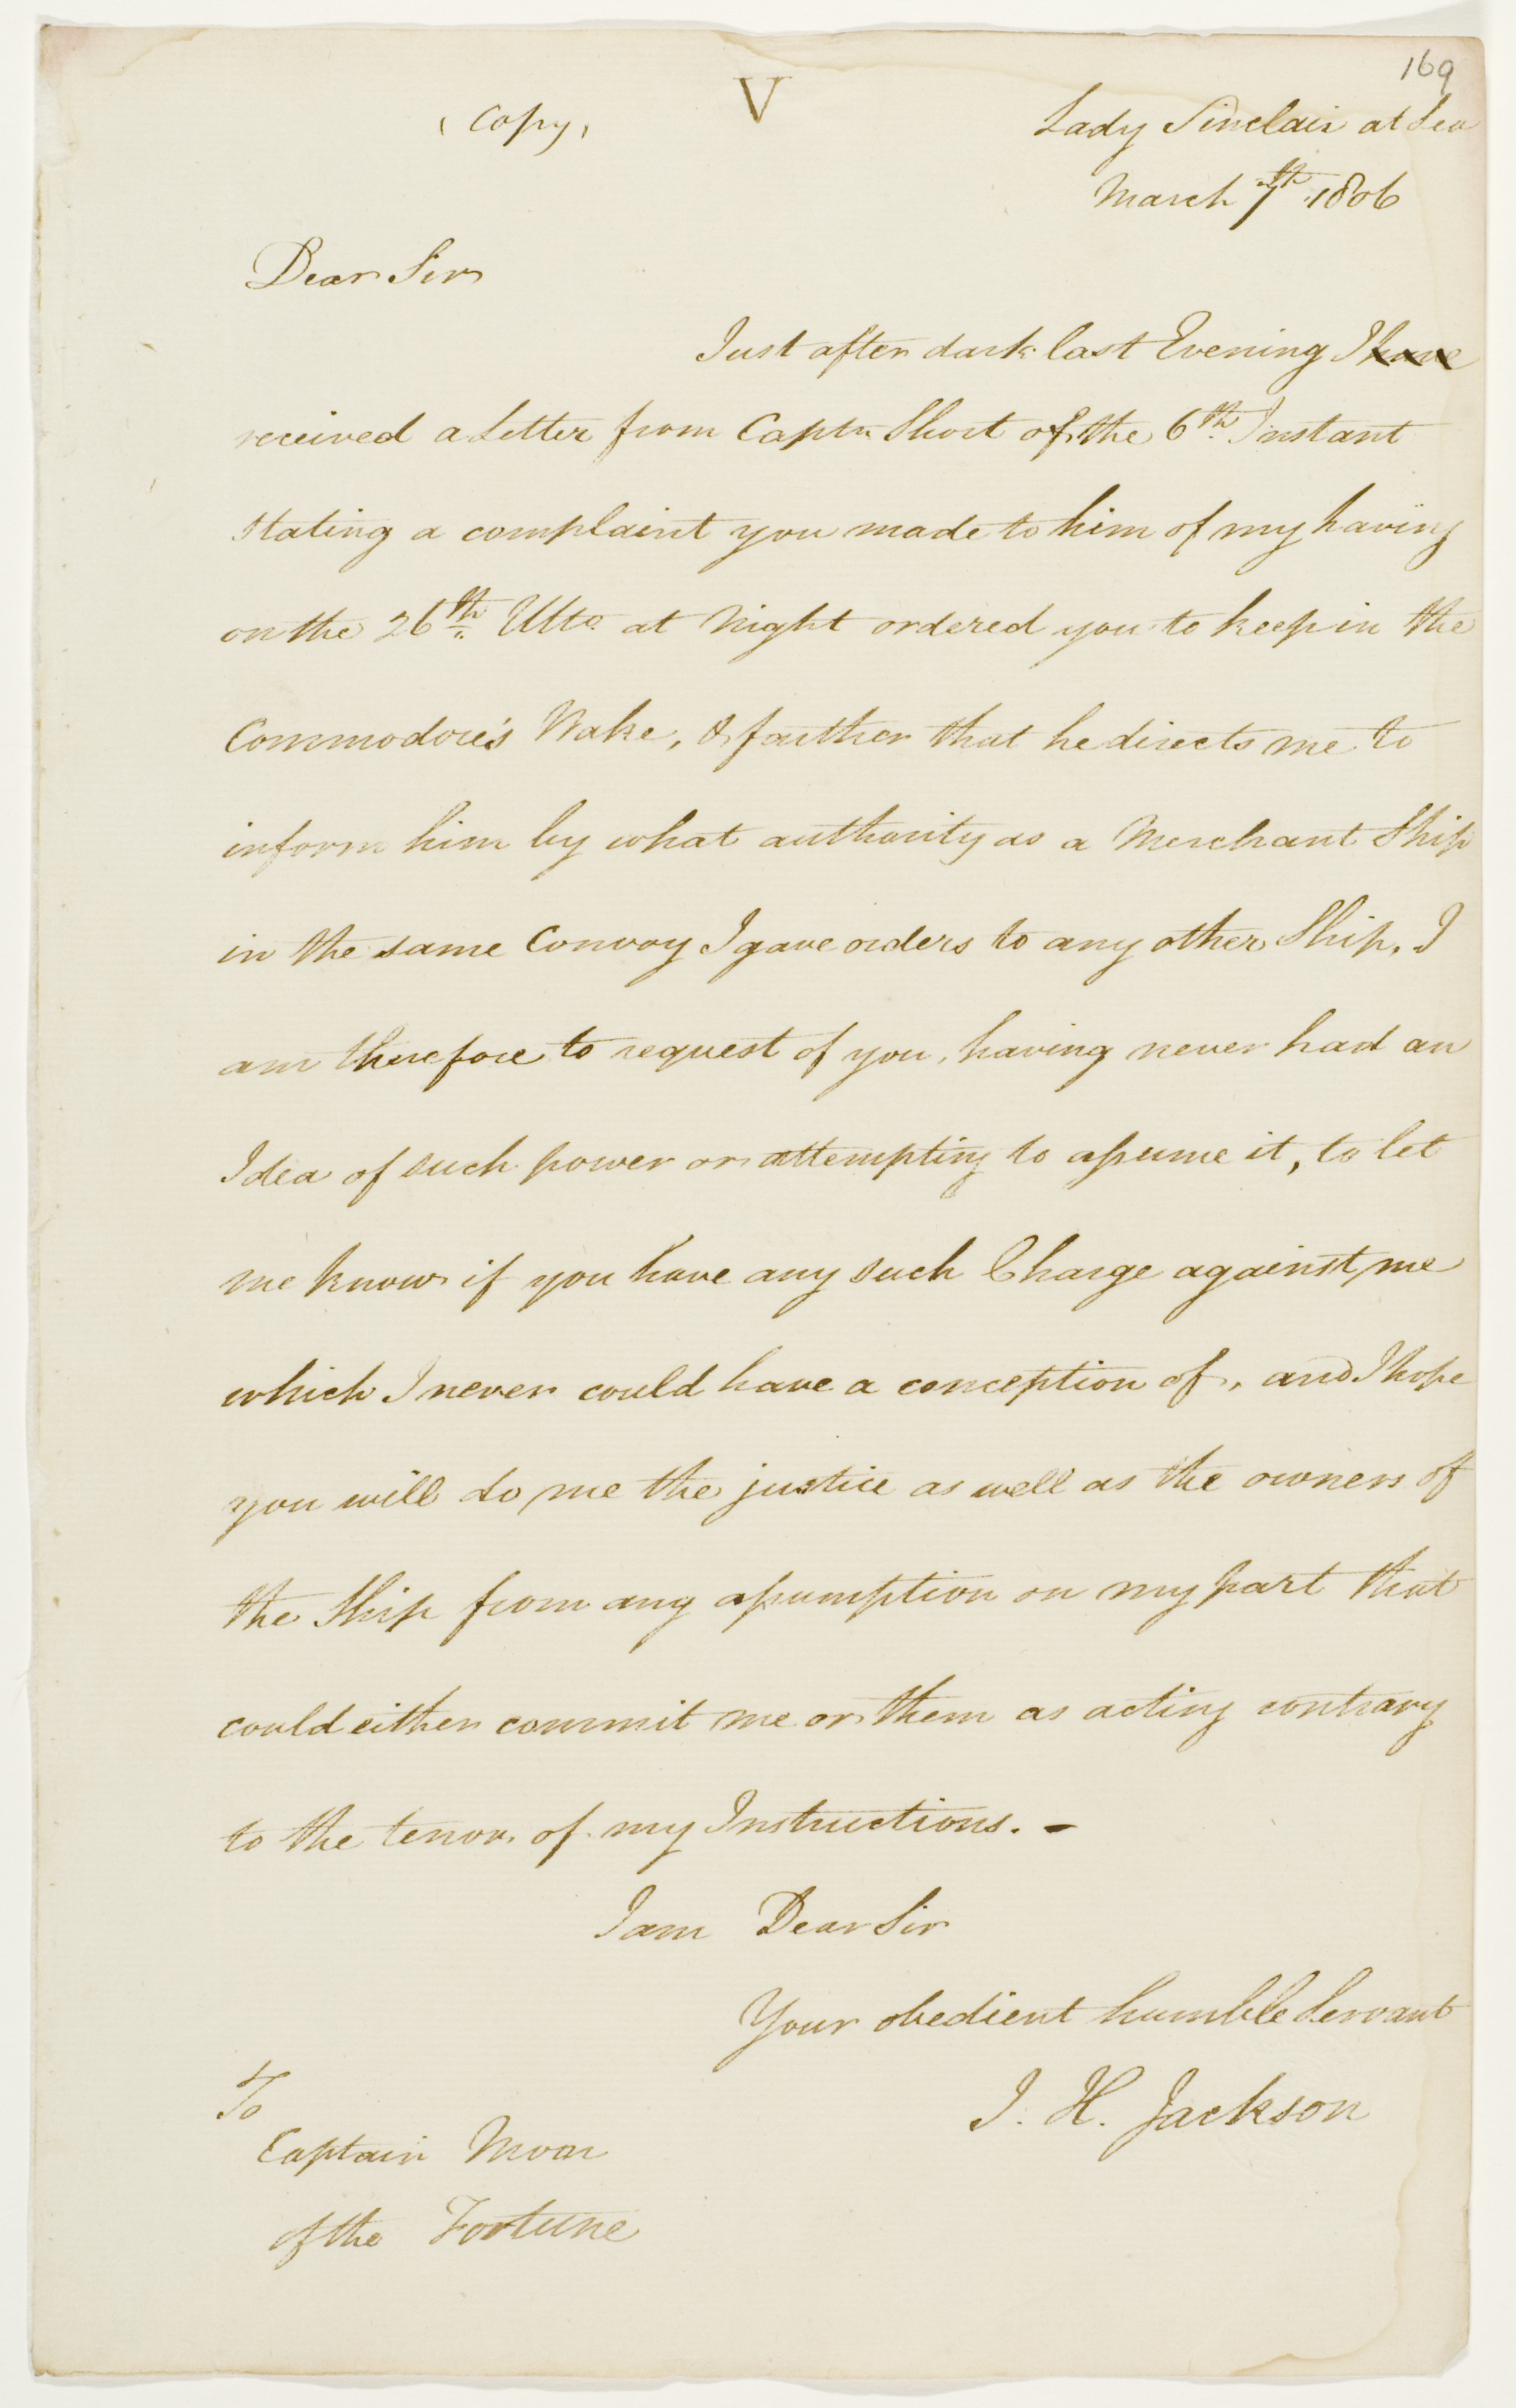 169
(Copy)
V
Lady Sinclair at Sea
March 7th 1806
Dear Sir
Just after dark last Evening I have
received a Letter from Captn Short of the 6th Instant
stating a complaint you made to him of my having
on the 26th Ulto at Night ordered you to keep in the
Commodore's Wake, & farther that he directs me to
inform him by what authority as a Merchant Ship
in the same Convoy I gave orders to any other Ship, I
am therefore to request of you, having never had an
Idea of such power or attempting to assume it, to let
me know if you have any such Charge against me
which I never could have a conception of, and I hope
you will do me the justice as well as the owners of
the Ship from any assumption on my part that
could either commit me or them as acting contrary
to the tenor of my Instructions. -
I am Dear Sir
Your obedient humble Servant
J. H. Jackson
To
Captain Moor
of the Fortune